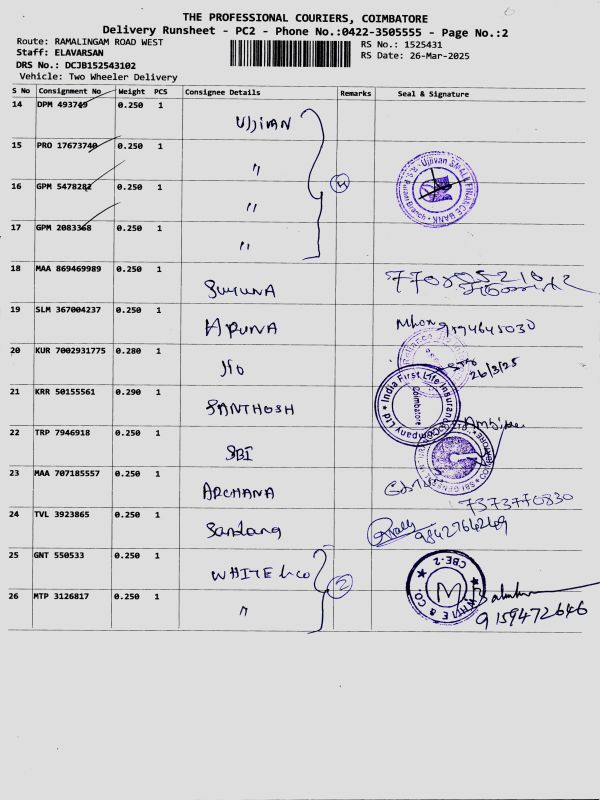 THE PROFESSIONAL COURIERS, COIMBATORE
Delivery Runsheet - PC2 - Phone No.:0422-3505555 - Page No.:2
Route: RAMALINGAM ROAD WEST
Staff: ELAVARSAN
DRS No.: DCJB152543102
Vehicle: Two Wheeler Delivery
RS No.: 1525431
RS Date: 26-Mar-2025
S No Consignment No Weight PCS Consignee Details Remarks Seal & Signature
14 DPM 493749 0.250 1 UJJIVAN
15 PRO 17673740 0.250 1 "
4
Ujjivan SMALL FINANCE BANK
16 GPM 5478282 0.250 1 "
17 GPM 2083368 0.250 1 "
18 MAA 869469989 0.250 1
19 SLM 367004237 0.250 1 9194645030
20 KUR 7002931775 0.280 1 JIO
26/3/25
21 KRR 50155561 0.290 1 SANTHOSH
India First Life Insurance Company Ltd
Coimbatore
22 TRP 7946918 0.250 1 SBI
23 MAA 707185557 0.250 1 ARCHANA
7373770830
24 TVL 3923865 0.250 1
25 GNT 550533 0.250 1 WHITE & CO
2
WHITE & CO. CBE-2
26 MTP 3126817 0.250 1 "
9159472646